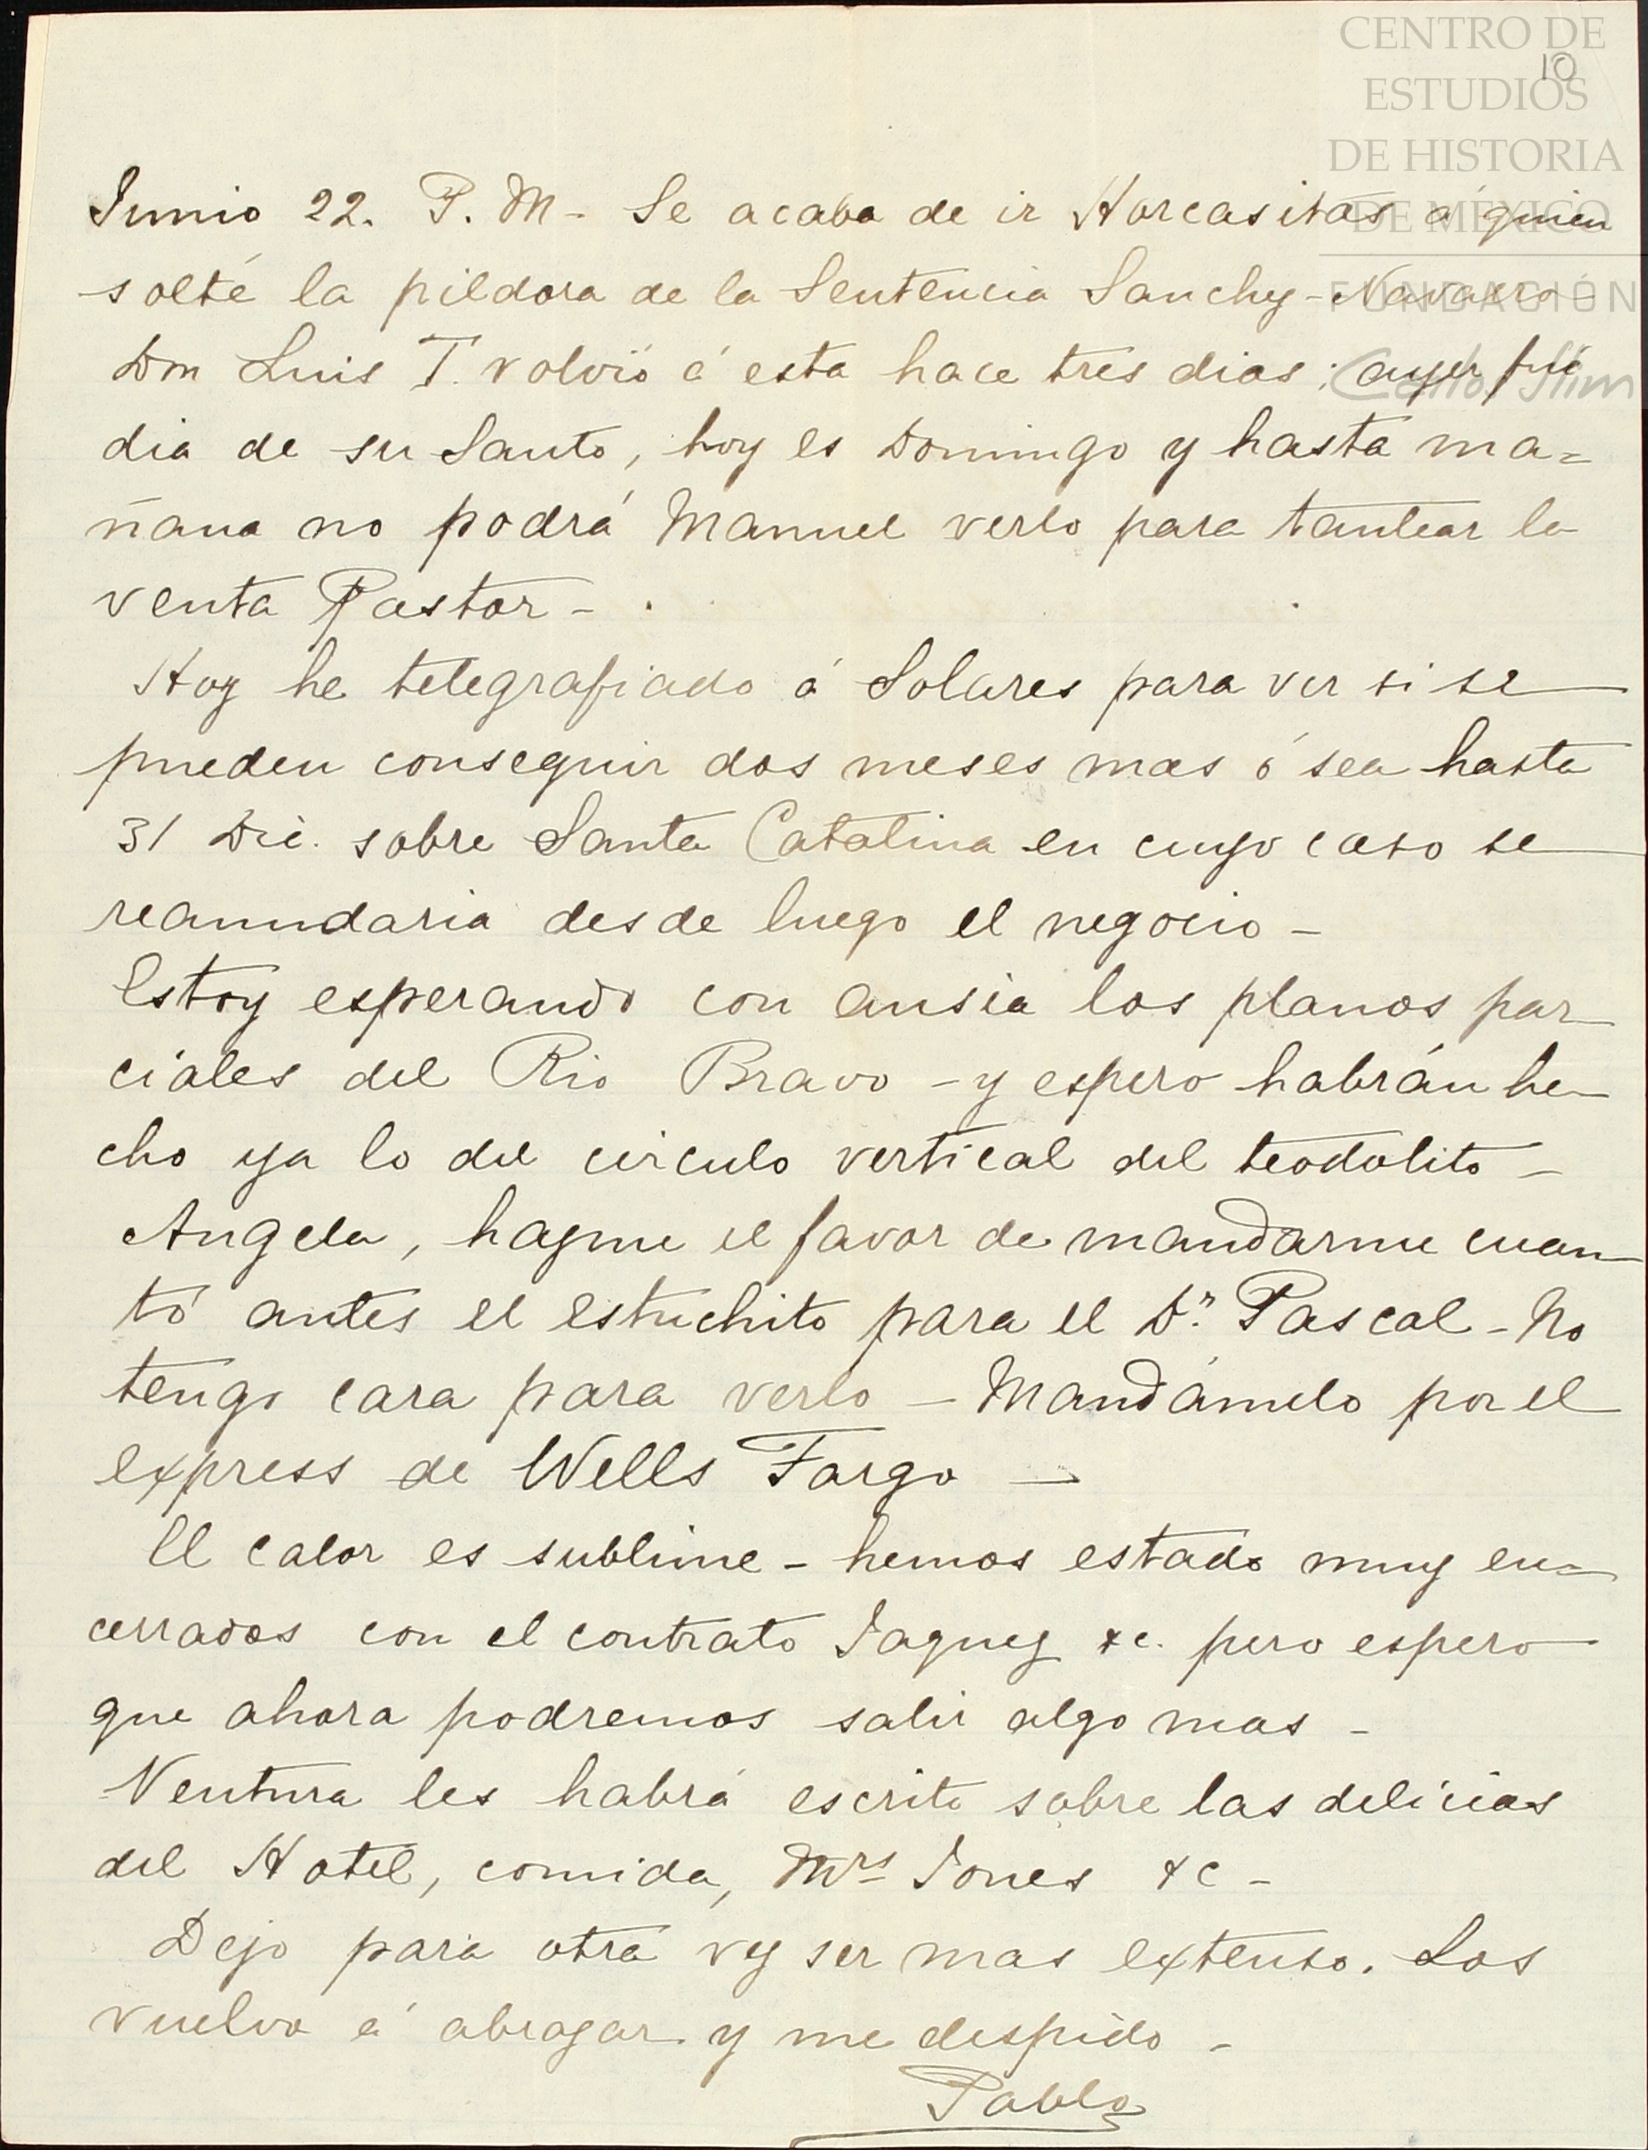 CENTRO DE
10
ESTUDIOS
DE HISTORIA
DE MÉXICO
FUNDACIÓN
Carlos Slim
Junio 22. P. M - Se acaba de ir Horcasitas á quien
solté la pildora de la Sentencia Sanchez-Navarro -
Don Luis T. volvió á esta hace tres dias; ayer fué
dia de su Santo, hoy es Domingo y hasta ma=
ñana no podrá Manuel verlo para tantear la
venta Pastor -
Hoy he telegrafiado á Solares para ver si se
pueden conseguir dos meses mas ó sea hasta
31 Dic. sobre Santa Catalina en cuyo caso se
reanudaria desde luego el negocio -
Estoy esperando con ansia los planos par
ciales del Rio Bravo - y espero habrán he-
cho ya lo del circulo vertical del teodolito -
Angela, hazme el favor de mandarme cuan
to antes el estuchito para el Dr. Pascal - No
tengo cara para verlo - Mandámelo por el
express de Wells Fargo -
El calor es sublime - hemos estado muy en=
cerrados con el contrato Jaquez &c. pero espero
que ahora podremos salir algo mas -
Ventura les habrá escrito sobre las delicias
del Hotel, comida, Mrs Jones &c -
Dejo para otra vez ser mas extenso. Los
vuelvo á abrazar y me despido -
Pablo